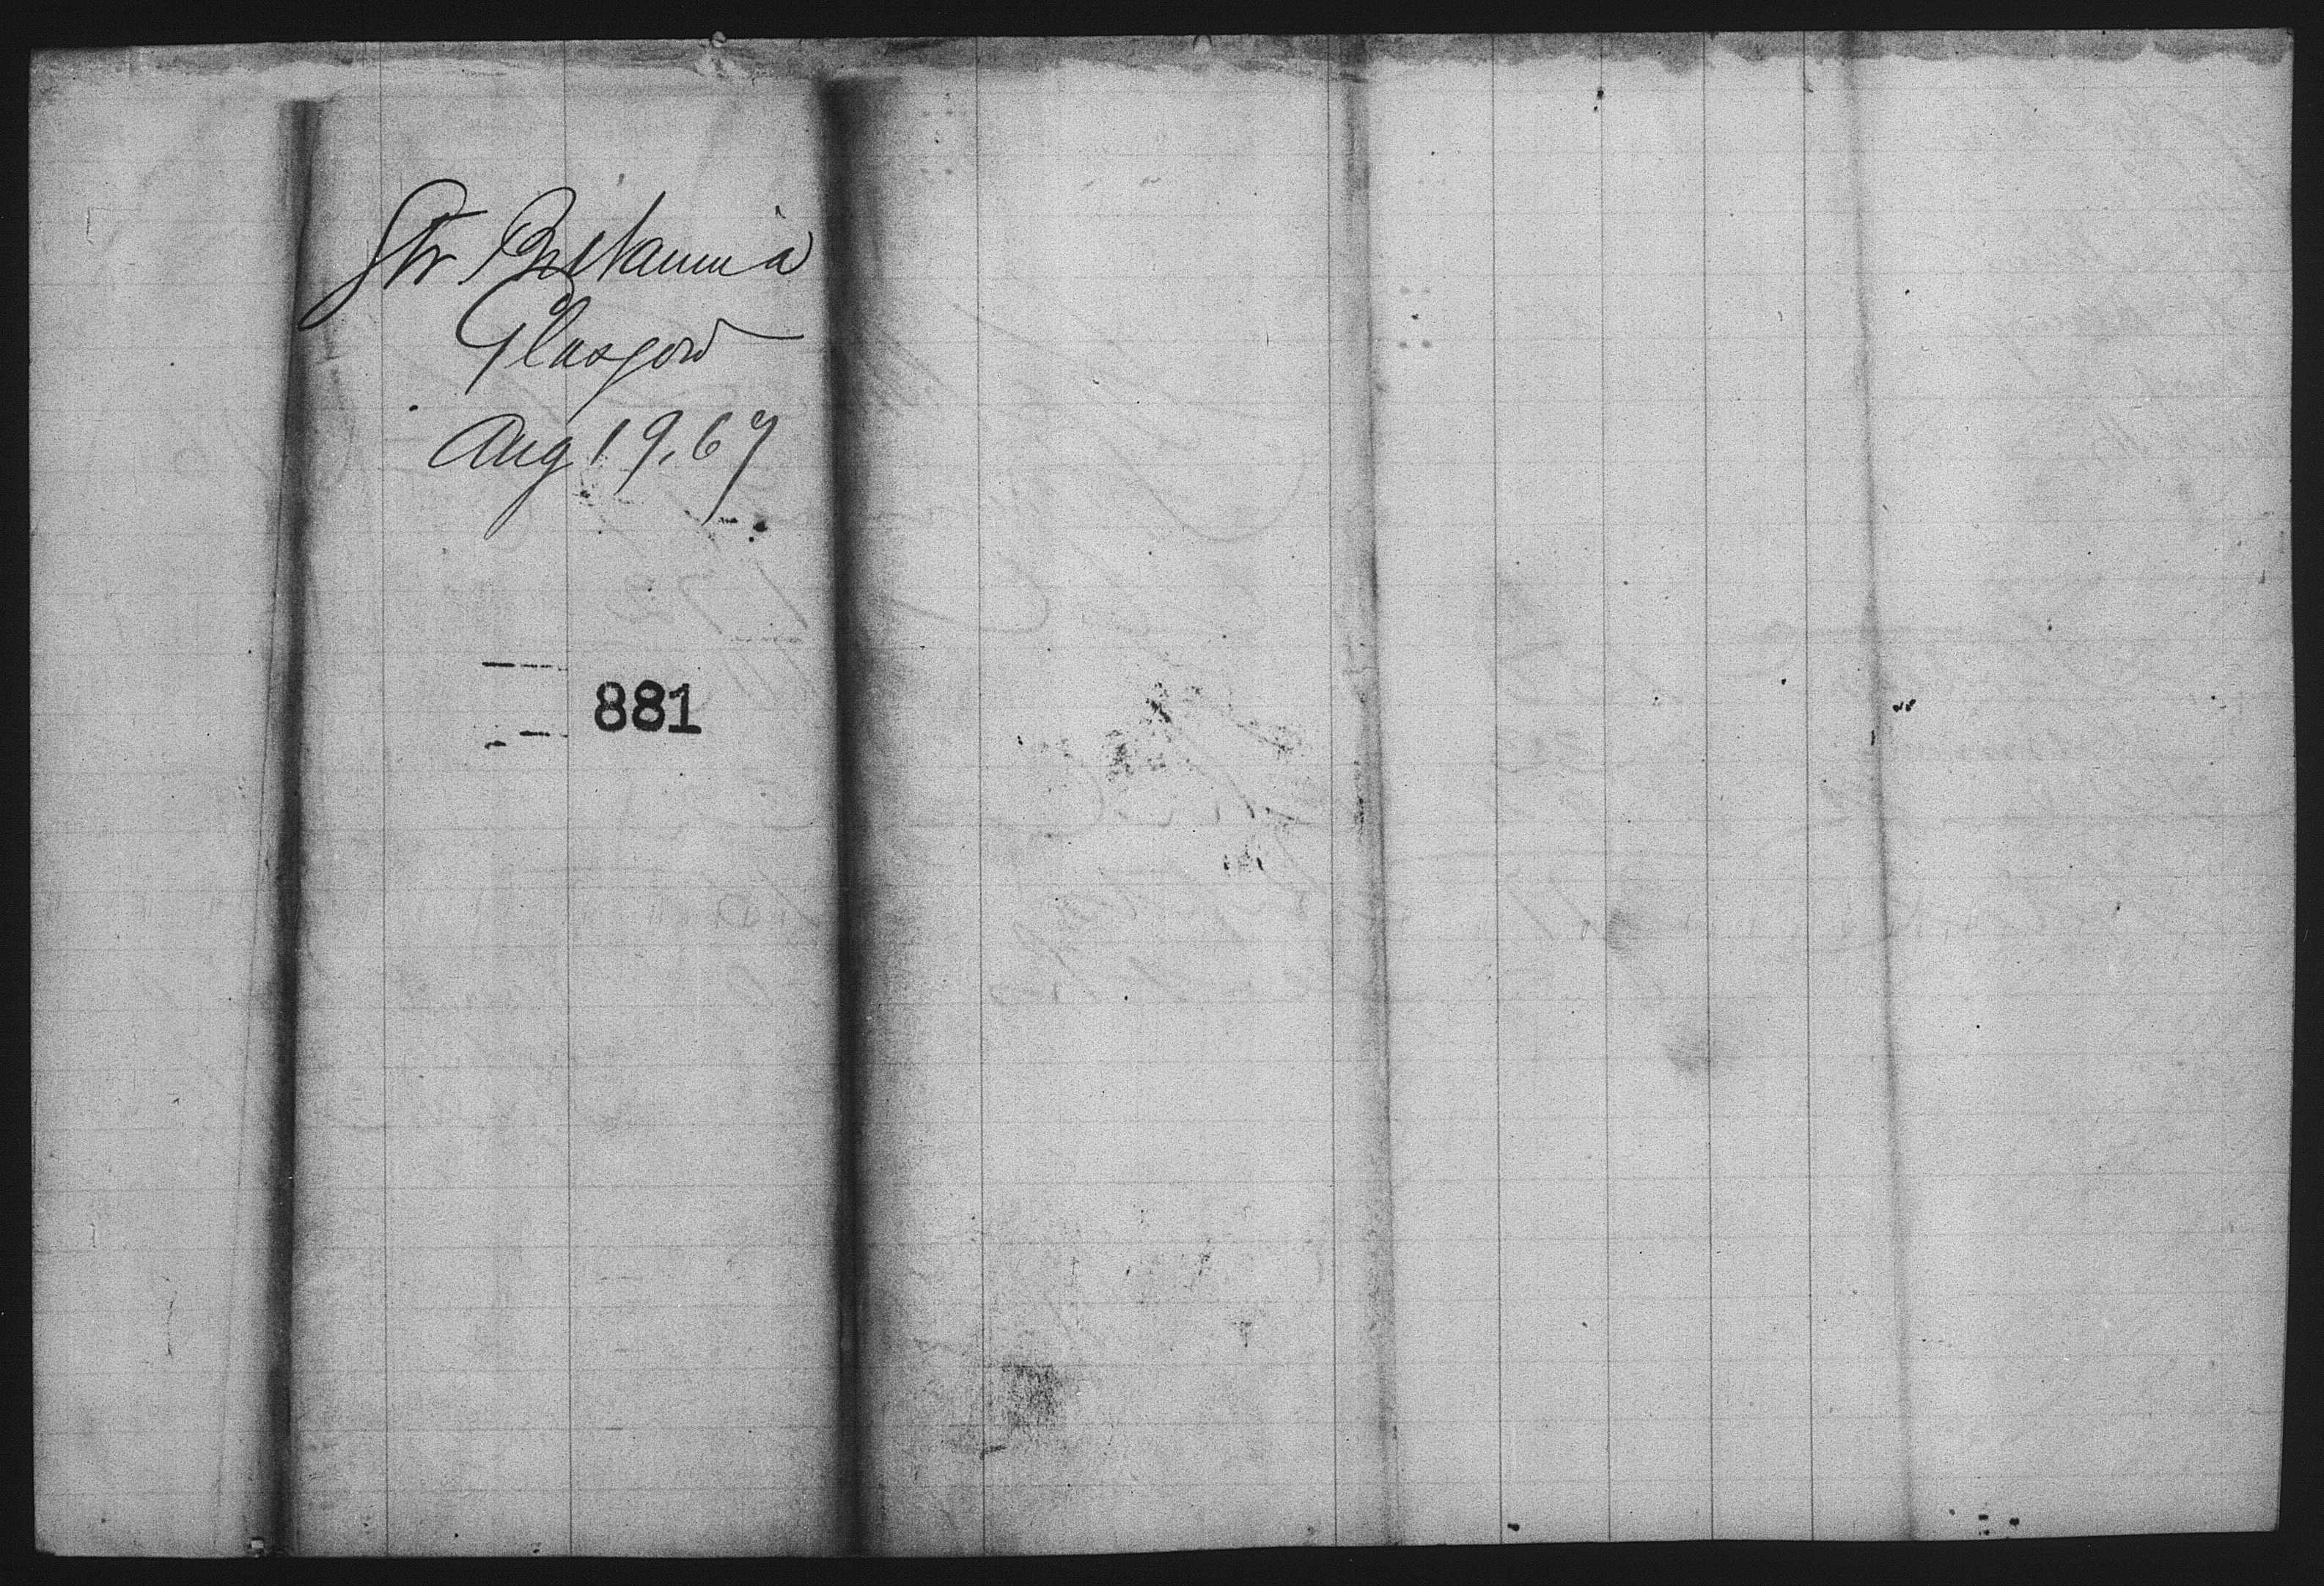 Str Britannia
Glasgow
Aug 19. 67
881